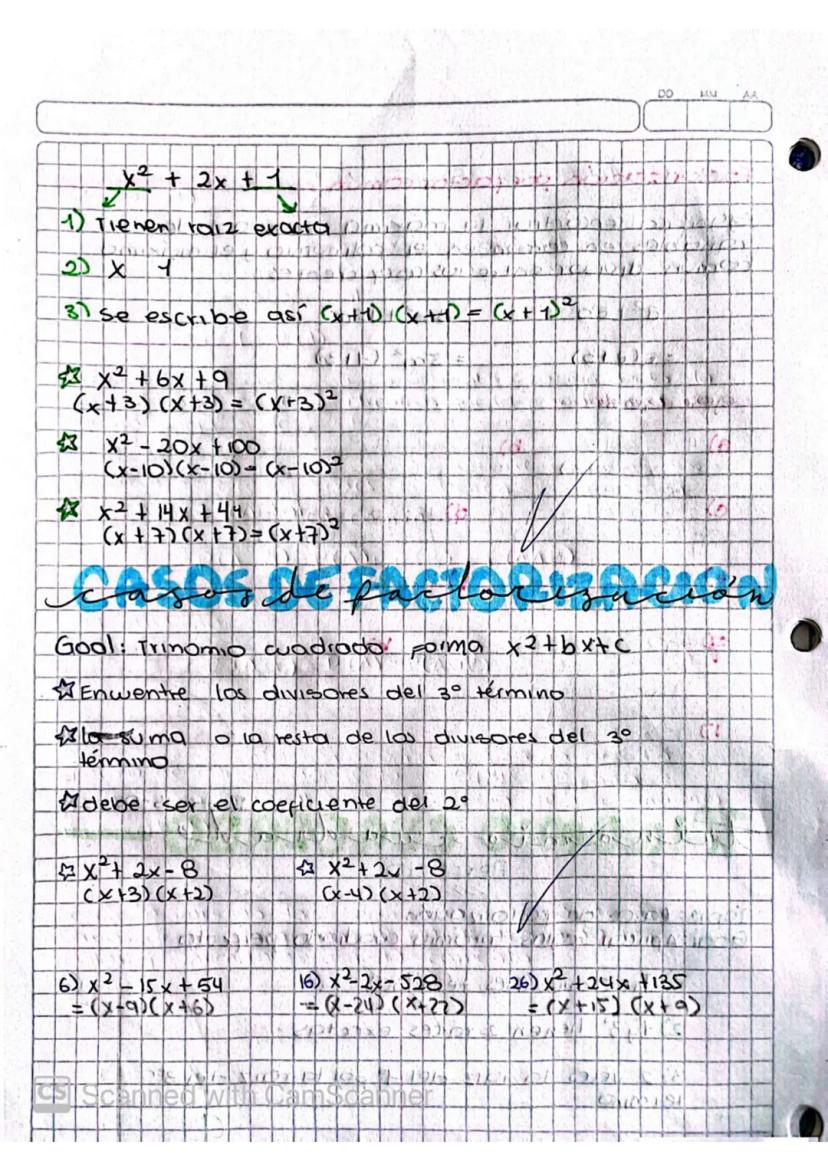 DD MM AA
x² + 2x + 1
1) Tienen raiz exacta
2) x 1
3) se escribe así (x+1) (x+1) = (x+1)²
☆ x² + 6x + 9
(x+3) (x+3) = (x+3)²
☆ x² - 20x + 100
(x-10)(x-10) = (x-10)²
☆ x² + 14x + 44
(x+7)(x+7) = (x+7)²
CASOS DE FACTORIZACIÓN
casos de factorización
Goal: Trinomio cuadrado forma x²+bx+c
☆ Encuentre los divisores del 3° término
☆ la suma o la resta de los divisores del 3°
término
☆ debe ser el coeficiente del 2°
☆ x² + 2x - 8 ☆ x² + 2x - 8
(x+3)(x+2) (x-4)(x+2)
6) x² - 15x + 54 16) x² - 2x - 528 26) x² + 24x + 135
= (x-9)(x+6) = (x-24)(x+22) = (x+15) (x+9)
CS Scanned with CamScanner